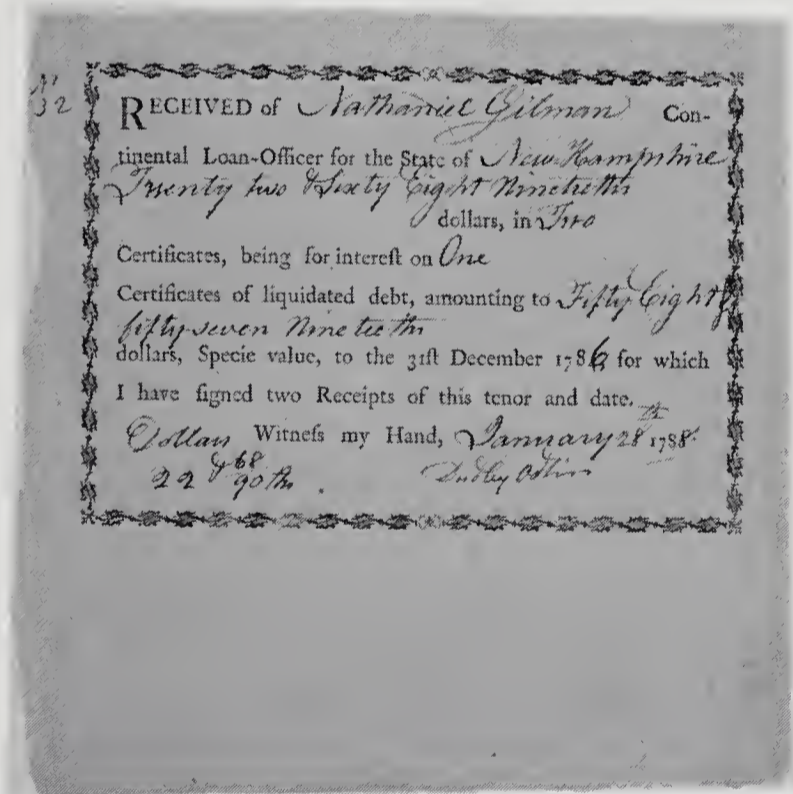 No
32
RECEIVED of Nathaniel Gilman Con-
tinental Loan-Officer for the State of New Hampshire
Twenty two & Sixty Eight Ninetieths
dollars, in Two
Certificates, being for intereſt on One
Certificates of liquidated debt, amounting to Fifty Eight &
fifty seven Ninetieths
dollars, Specie value, to the 31ſt December 1786 for which
I have ſigned two Receipts of this tenor and date.
Dollars Witneſs my Hand, January 28th 1788.
22 & 68/90ths Dudley